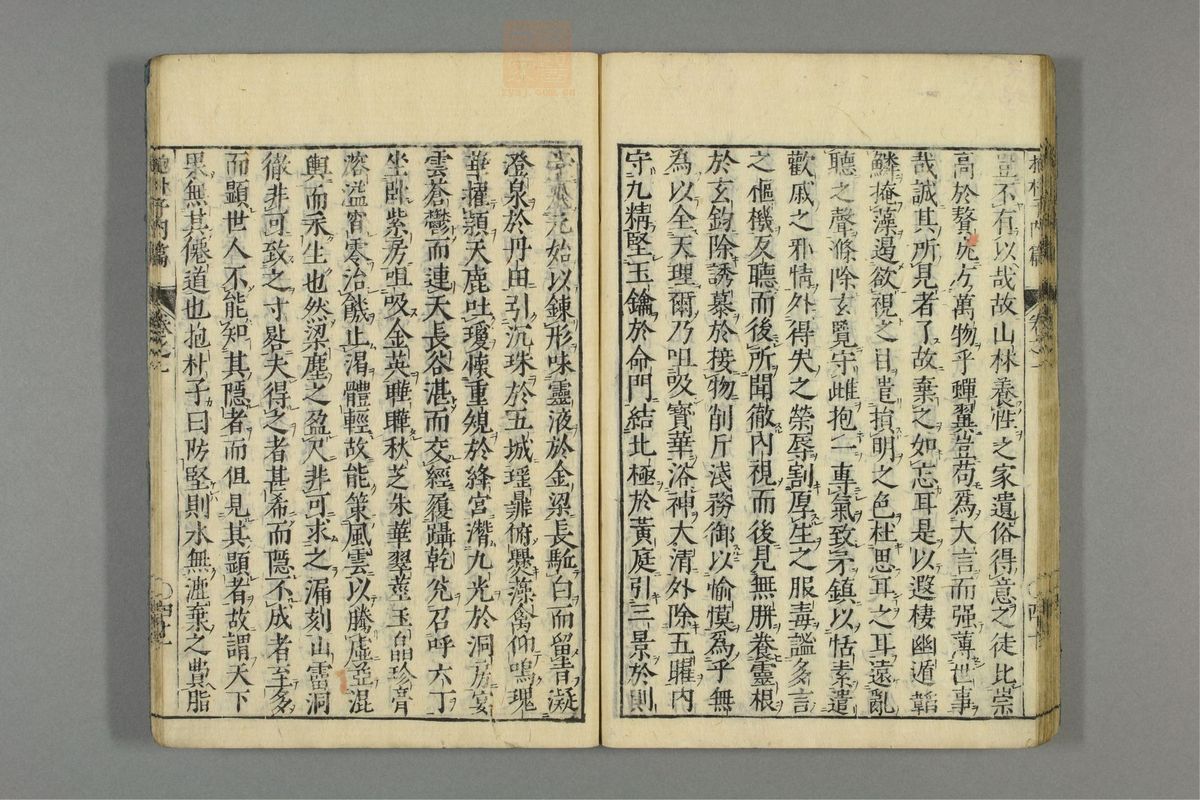 豈不有以哉故山林養性之家遺俗得意之徒比崇
高於贅疣方萬物乎蟬翼豈苟為大言而强薄世事
哉誠其所見者了故棄之如忘耳是以遐棲幽遁韜
鱗掩藻遏欲視之目遣損明之色杜思耳之耳遠亂
聽之聲滌除玄覽守雌抱一專氣致柔鎮以恬素遣
歡戚之邪情外得失之榮辱割厚生之腊毒謐多言
之樞機反聽而後所聞徹內視而後見無朕養靈根
於玄鈞除誘慕於接物削斤淺務御以愉慔為乎無
為以全天理爾乃咀吸寶華浴神太清外除五曜內
守九精堅玉鑰於命門結北極於黃庭引三景於明
堂飛元始以鍊形味靈液於金梁長駈白而留青凝
澄泉於丹田引沉珠於五城瑤鼎俯爨藻禽仰鳴瑰
華擢穎天鹿吐瓊懷重規於絳宮潛九光於洞房宴
雲蒼鬱而連天長谷湛而交經履躡乾兊召呼六丁
坐臥紫房咀吸金英曄曄秋芝朱華翠莖皛皛珍膏
溶溢霄零治飢止渴體輕故能策風雲以騰虛並混
輿而永生也然梁塵之盈尺非可求之漏刻山霤洞
徹非可致之寸晷夫得之者甚希而隱不成者至多
而顯世人不能知其隱者而但見其顯者故謂天下
果無其僊道也抱朴子曰防堅則水無漉棄之費脂
抱朴子內篇
卷之一
四十一